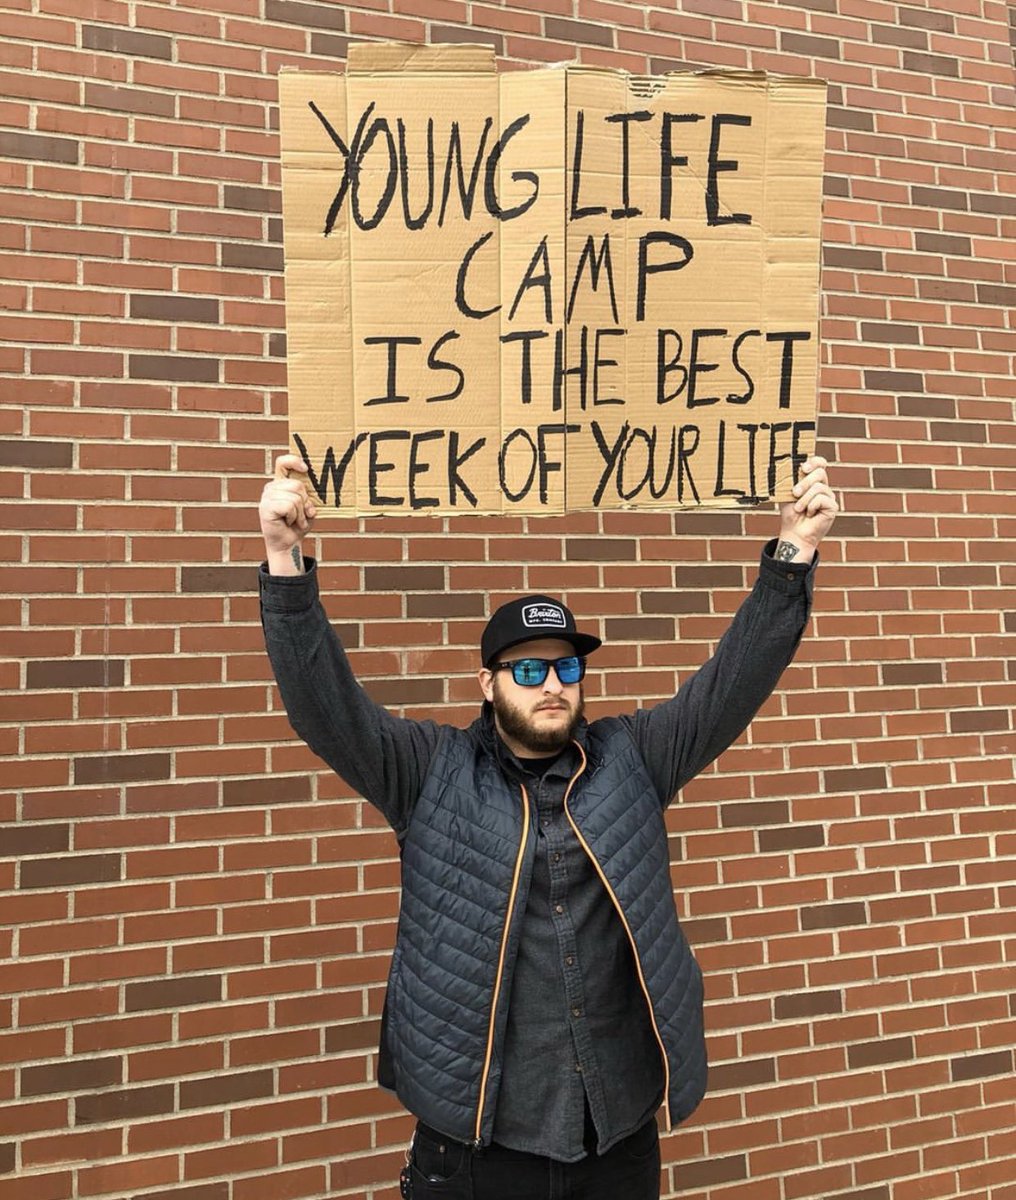 YOUNG LIFE
CAMP
IS THE BEST
WEEK OF YOUR LIFE
Brixton
MFG. COMPANY